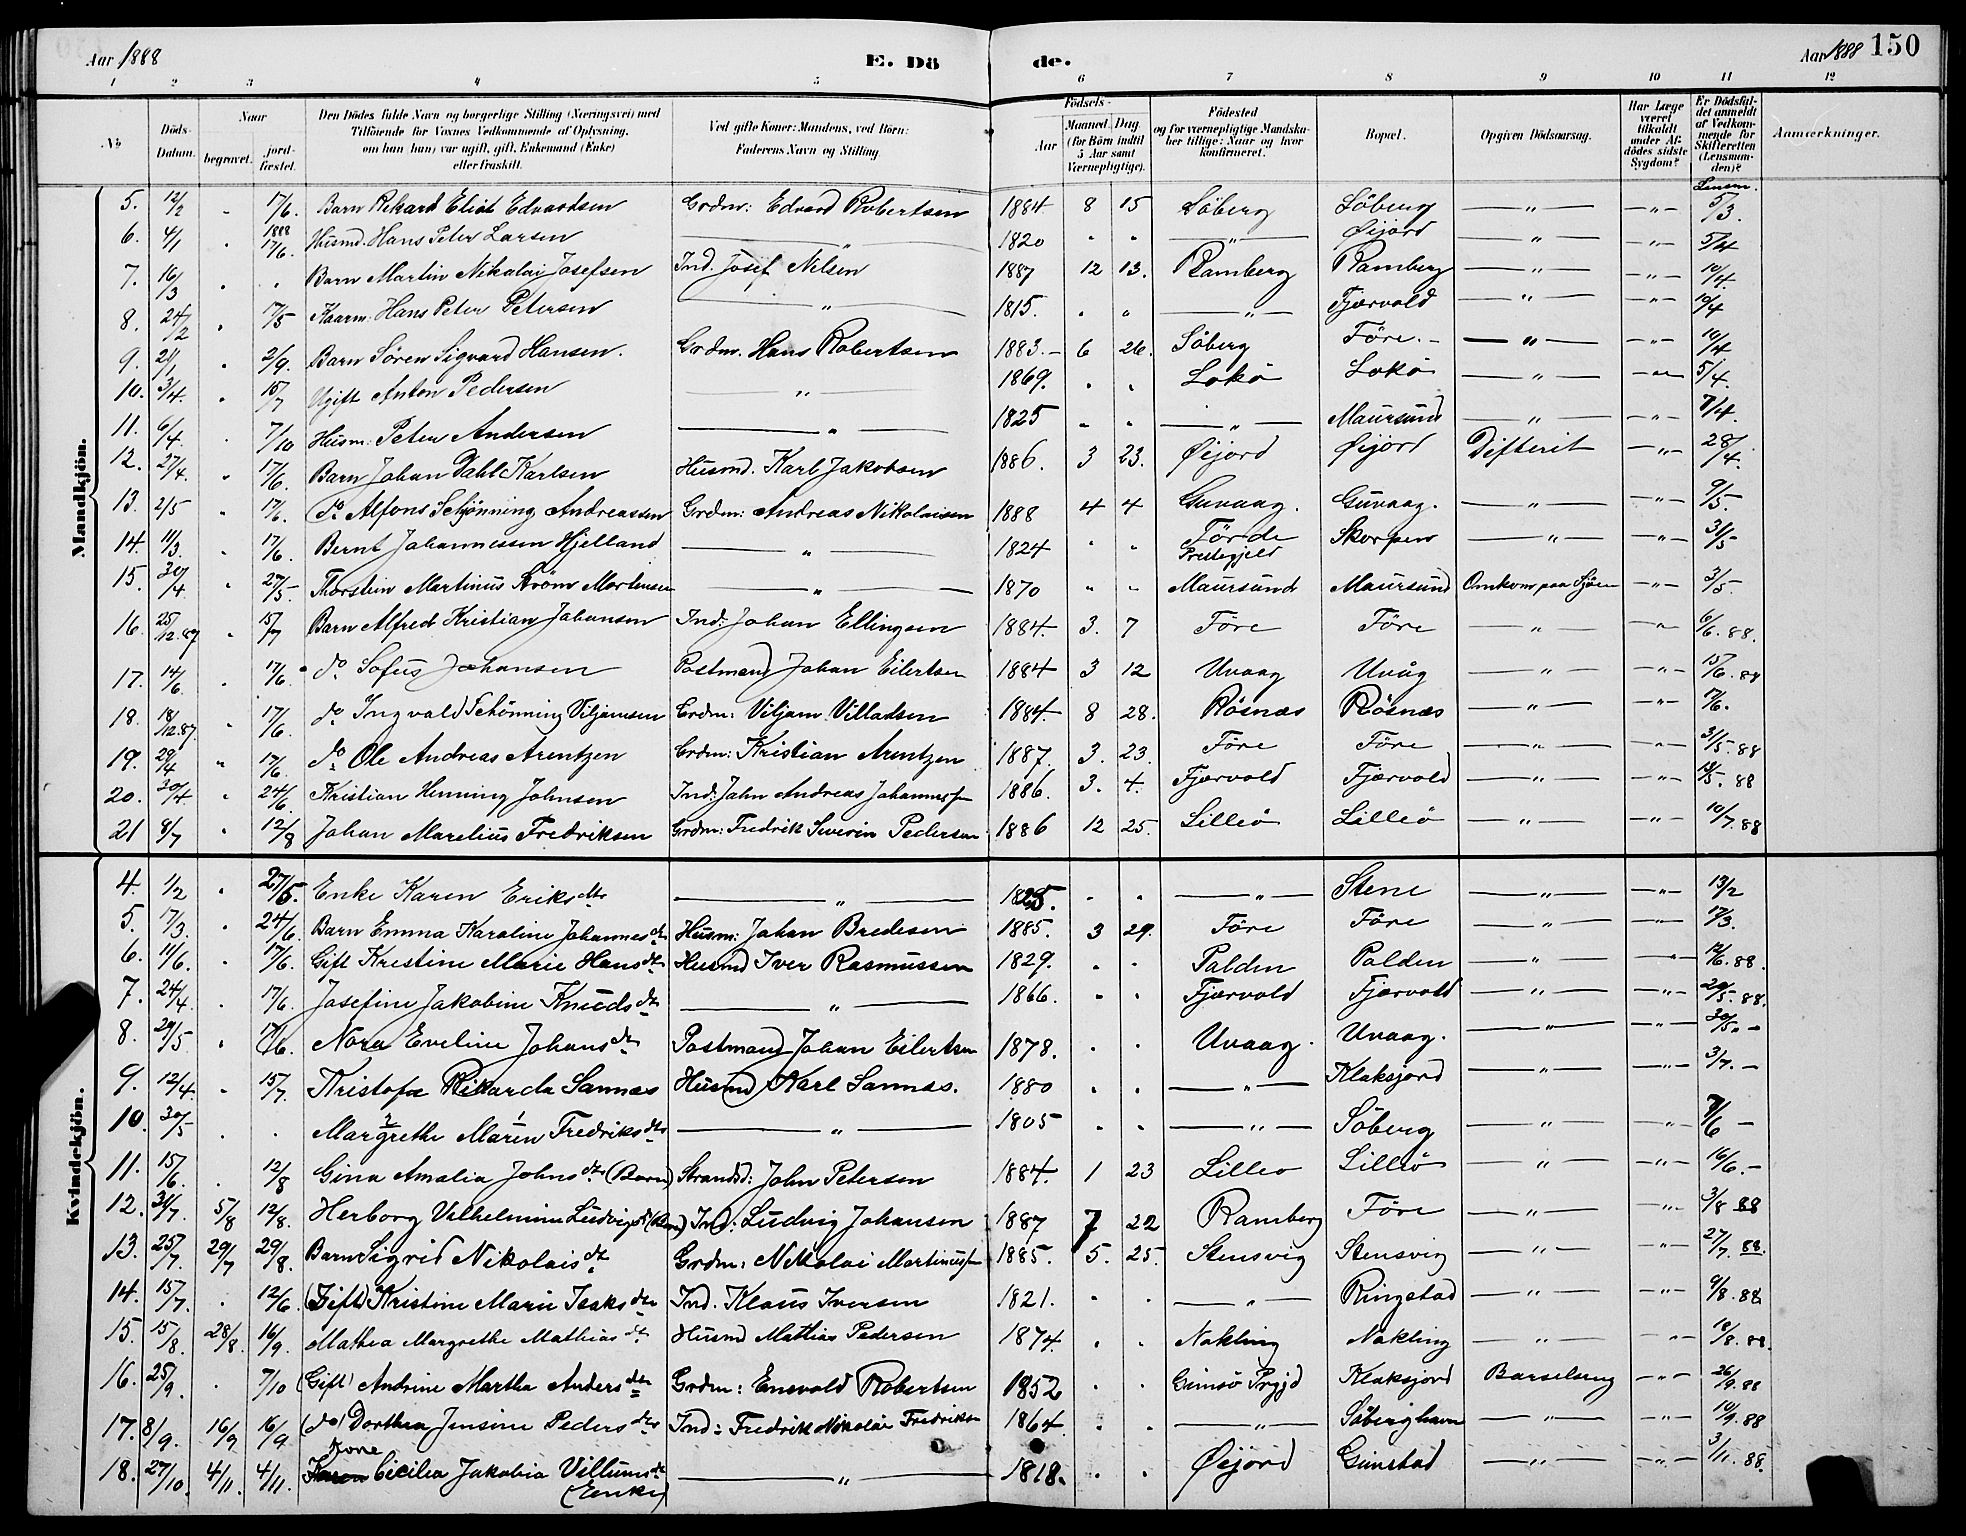 Aar 1888 E. Dö de. Aar 1888 150
1 2 3 4 5 6 7 8 9 10 11 12
No Döds-Datum. Naar begravet. jordfæstet. Den Dödes fulde Navn og borgerlige Stilling (Næringsvei) med Tilföiende for Voxnes Vedkommende af Oplysning, om han (hun) var ugift, gift, Enkemand (Enke) eller fraskilt. Ved gifte Koner: Mandens, ved Börn: Faderens Navn og Stilling. Födsels- Aar Maaned. Dag. (for Börn indtil 5 Aar samt Værnepligtige). Födested og for værnepligtige Mandskaber tillige: Naar og hvor konfirmeret. Bopæl. Opgiven Dödsaarsag. Har Læge været tilkaldt under Afdödes sidste Sygdom? Er Dödsfaldet anmeldt af Vedkommende for Skifteretten (Lensmanden)? Anmærkninger.
Mandkjön.
Lensm.
5. 12/2 " 17/6. Barn Rikard Eliot Edvardsen Grdm: Edvard Robertsen 1884 8 15 Söberg Söberg — " — — " — 5/3.
6. 4/1 " 1888 17/6. Husmd. Hans Peter Larsen — " — 1820 " " — " — Öijord — " — — " — 5/4
7. 16/3 " " Barn Martin Nikolai Josefsen Ind. Josef Nilsen 1887 12 13. Ramberg Ramberg — " — — " — 10/4
8. 24/2 " 17/5 Kaarm: Hans Peter Petersen — " — 1815. " " — " — Fjærvold — " — — " — 10/4
9. 21/1 " 2/9. Barn Sören Sigvard Hansen. Grdm. Hans Robertsen 1883. 6 26. Söberg Före. — " — — " — 10/4
10. 3/4. " 15/7 Ugift Anton Pedersen — " — 1869. " " Lokö Lokö — " — — " — 5/4.
11. 6/4. " 7/10 Husm: Peter Andersen — " — 1825 " " — " — Maursund — " — — " — 7/4.
12. 27/4. " 17/6. Barn Johan Dahl Karlsen Husmd. Karl Jakobsen 1886. 3 23. Öijord Öijord Difterit — " — 28/4.
13. 2/5 " 17/6. do Alfons Schönning Andreassen Grdm: Andreas Nikolaisen 1888 4 4 Guvaag. Guvaag. — " — — " — 9/5.
14. 11/3. " 17/6. Bernt Johannessen Hjelland — " — 1824 " " Förde Prestegjeld Skorpen — " — — " — 31/5
15. 30/4 " 27/5 Thorstein Martinus Ström Mortensen — " — 1870 " " Maursund Maursund Omkom paa Sjöen — " — 3/5.
16. 25/12.87 " 15/7 Barn Alfred Kristian Johansen Ind: Johan Ellingsen 1884. 3. 7 Före Före — " — — " — 6/6. 88.
17. 14/6. " 17/6. do Sofus Johansen Postmand Johan Eilertsen 1884 3 12 Uvaag Uvåg — " — — " — 15/6. 88
18. 18/12.87. " 17/6. do Ingvald Schönning Viljamsen Grdm: Viljam Villadsen 1884. 8 28. Rösnæs Rösnæs — " — — " — 17/6.
19. 29/4 " 17/6. do Ole Andreas Arentzen Grdm: Kristian Arentzen 1887. 3. 23. Före Före — " — — " — 31/5. 88
20. 30/4 " 24/6 Kristian Henning Johnsen Ind: John Andreas Johannessen 1886. 3. 4. Fjærvold Fjærvold — " — — " — 88
21 8/7 " 12/8 Johan Marelius Fredriksen Grdm: Fredrik Severin Pedersen 1886 12 25. Lilleö Lilleö — " — — " — 10/7. 88
Kvindekjön.
4. 1/2 " 27/5. Enke Karen Eriksdtr — " — 1825. " " — " — Stene — " — — " — 13/2
5. 17/3. " 24/6. Barn Emma Karoline Johannesdtr Husm: Johan Bredesen 1885. 3 29. Före Före — " — — " — 17/3.
6. 11/6. " 17/6. Gift Kristine Marie Hansdtr Husmd Iver Rasmussen 1829. " " Palden Palden — " — — " — 12/6. 88.
7. 24/4. " 17/6. Josefine Jakobine Knudsdtr — " — 1866. " " Fjærvold Fjærvold — " — — " — 29/5. 88.
8. 29/5 " 17/6. Nora Eveline Johansdtr Postmand Johan Eilertsen 1878. " " Uvaag. Uvaag. — " — — " — 30/5. —
9. 12/4. " 15/7. Kristofa Rikarda Sannæs Husmd Karl Sannæs. 1880 " " — " — Klaksjord — " — — " — 3/7. —
10. 30/5 " " Margrethe Maren Fredriksdtr — " — 1805 " " — " — Söberg — " — — " — 7/6 —
11. 15/6. " 12/8 Gina Amalia Johnsdtr (Barn) Strands: John Petersen 1884. 1 23 Lilleö Lilleö — " — — " — 16/6. —
12. 31/7. 5/8 12/8. Herborg Vilhelmine Ludvigsd (Barn) Ind: Ludvig Johansen 1887 7 22 Ramberg Före — " — — " — 3/8 88
13. 25/7. 29/7 29/8. Barn Sigrid Nikolaisdtr Grdm: Nikolai Martinussen 1885. 5. 25. Stensvig Stensvig — " — — " — 27/7. 88.
14. 15/7. " 12/6. (Gift) Kristine Marie Isaksdtr Ind. Klaus Iversen 1821. " " — " — Ringstad — " — — " — 9/8. 88
15. 15/8. 28/8. 16/9. Mathea Margrethe Mathiasdtr Husmd Mathias Pedersen 1874. " " Nokling Nokling — " — — " — 18/8. 88.
16. 25/9. " 7/10 (Gift) Andrine Martha Andersdtr Grdm: Ensvold Robertsen 1852 " " Gimsö Prgjd Klaksjord Barselseng — " — 26/9. 88
17. 8/9. 16/9 16/9 (do) Dorthea Jensine Pedersdtr Ind: Fredrik Nikolai Fredriksen 1864. " " — " — Söberghavn — " — — " — 10/9. 88
18. 27/10. 4/11. 4/11. Kone Cicilia Jakobia Villumsdtr (Enke) — " — 1818. " " Öijord Gimstad — " — — " — 3/11. 88.